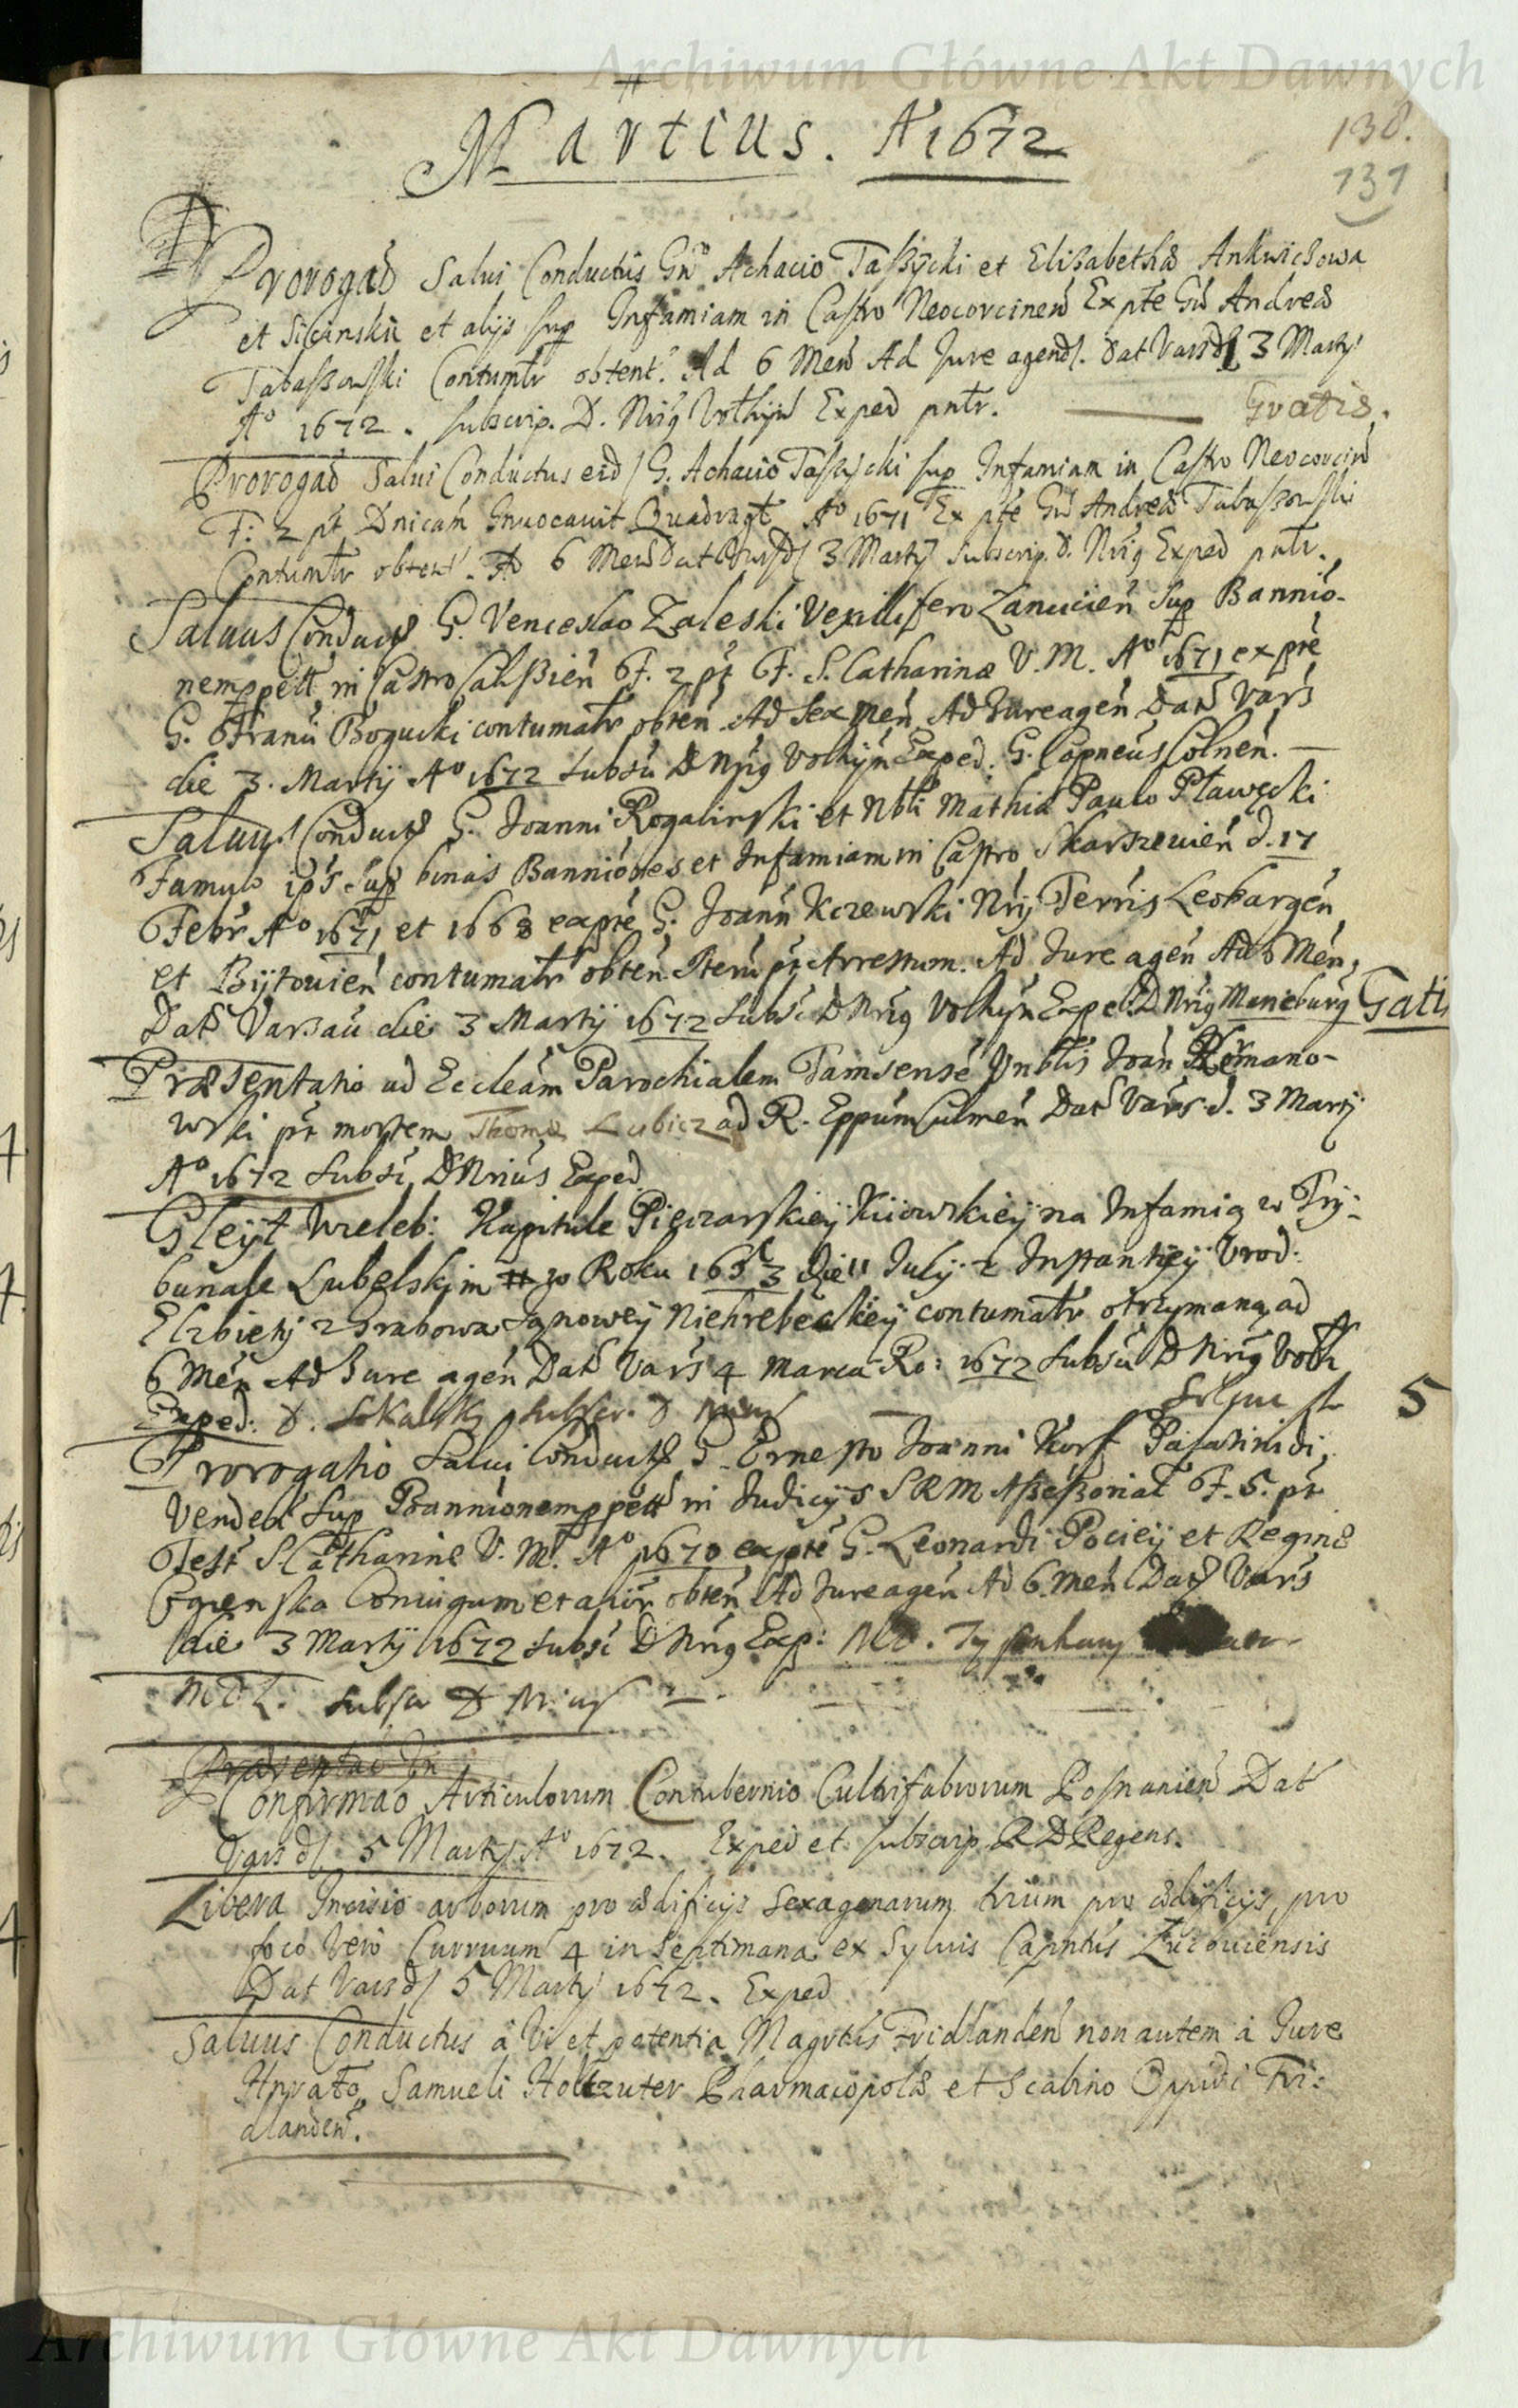 Archiwum Główne Akt Dawnych
Martius. Aº 1672
138.
131
Prorogaõ Salui Conductus Gnº Achacio Taßycki et Elisabethæ Ankwiczowa
et Sicinskii et alijs sup Infamiam in Castro Neocorcinen Ex pte Gn Andreæ
Tabaßowski Contumtr obtent. Ad 6 Men Ad Jure agend. Dat Vars d 3 Martij
Aº 1672. subscrip. D. Nrig Exped pntr. Gratis.
Prorogaõ Salui Conductus eid G. Achacio Taßycki sup Infamiam in Castro Neocorcin
F: 2 pt Dnicam Inuocauit Quadragt Aº 1671 Ex pte Gn Andreæ Tabaßowski
Contumtr obtent. Ad 6 Men Dat Vars d 3 Martij subscrip. D. Nrig Exped pntr.
Saluus Conduct G. Venceslao Zaleski Vexillifero Lanucien sup Bannio-
nem ppett in Castro Calißien F. 2 pt F. S. Catharinæ V. M. Aº 1671 ex pte
G. Franci Bogucki contumatr obten Ad sex men Ad Jure agen Dat Vars
die 3. Martij Aº 1672 subscr D Nrig Volhyn Exped. G. Capneus Colnen.
Saluus Conduct G. Joanni Rogalinski et Nbli Mathia Paulo Pławęcki
Famulo ipś sup binas Banniones et Infamiam in Castro Skarszewien d. 17
Febr Aº 1671 et 1668 ex pte G. Joann Kczewski Nrij Terris Leoburgen
et Bytouien contumatr obten Item pt Arrestum. Ad Jure agen Ad 6 Men,
Dat Varsau die 3 Martij 1672 subsc D Nrig Volhyn Exped D Nrig Marieburg Gatis
Præsentatio ad Eccleam Parochialem Tamsense Vnblis Joan Romano-
wski pt mortem Thomæ Lubicz ad R. Eppum Culmen Dat Vars d. 3 Martij
Aº 1672 subsc D Nrius Exped
Gleyt Wieleb: Kapitule Pieczarskiey Kiiowskiey na Infamią w Try-
bunale Lubelskim w Roku 1653 die 11 July z Instantyey Vrod:
Elzbiety z Grabowa Janowey Niehrebeckiey contumatr otrzymaną ad
6 Men Ad Jure agen Dat Vars 4 Marca Ro: 1672 subscr D Nrig Volh
Exped: D. Sokalsky subscr. D
5
Prorogatio Salui Conduct G. Ernesto Joanni Korf Palatinidi
Venden sup Bannionem ppett in Judicijs SRM Aßeßoriat F. 5. pt
Fest S. Catharine V. M. Aº 1670 ex pte G. Leonardi Pociey et Regine
Coniugum et alior obten Ad Jure agen Ad 6. Men Dat Vars
die 3 Martij 1672 subsc D Nrig Exp:
MDL. subscr D
Præsentaõ In
Confirmaõ Articulorum Contubernio Cultrifabrorum Posnanien Dat
Vars d 5 Martij Aº 1672. Exped et subscrip. R D Regens.
Libera Incisio arborum pro ædificijs sexagenarum trium pro ædificijs, pro
foco Vero Curruum 4 in Septimana ex Syluis Capntus
Dat Vars d 5 Martij 1672. Exped
Saluus Conductus à Vi et potentia Magrtus Fridlanden non autem à Jure
Hnrato Samueli Holtzuter Pharmacopolæ et Scabino Oppidi Fri:
dlanden.
Archiwum Główne Akt Dawnych